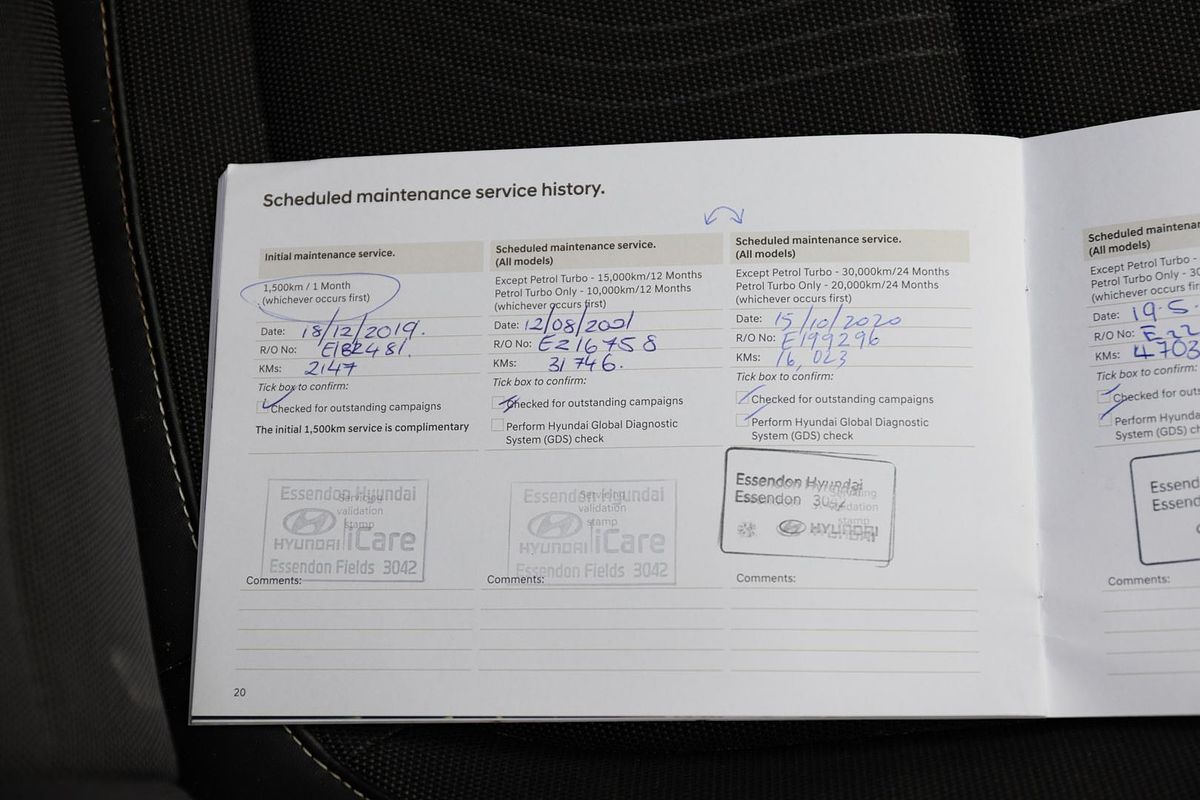 Scheduled maintenance service history.
Initial maintenance service.
1,500km / 1 Month
(whichever occurs first)
Date: 18/12/2019.
R/O No: E182481.
KMs: 2147
Tick box to confirm:
Checked for outstanding campaigns
The initial 1,500km service is complimentary
Essendon Hyundai
Servicing
validation
stamp
HYUNDAI iCare
Essendon Fields 3042
Comments:
Scheduled maintenance service.
(All models)
Except Petrol Turbo - 15,000km/12 Months
Petrol Turbo Only - 10,000km/12 Months
(whichever occurs first)
Date: 12/08/2021
R/O No: E216758
KMs: 31746.
Tick box to confirm:
Checked for outstanding campaigns
Perform Hyundai Global Diagnostic
System (GDS) check
Essendon Hyundai
Servicing
validation
stamp
HYUNDAI iCare
Essendon Fields 3042
Comments:
Scheduled maintenance service.
(All models)
Except Petrol Turbo - 30,000km/24 Months
Petrol Turbo Only - 20,000km/24 Months
(whichever occurs first)
Date: 15/10/2020
R/O No: E199296
KMs: 16,023
Tick box to confirm:
Checked for outstanding campaigns
Perform Hyundai Global Diagnostic
System (GDS) check
Essendon Hyundai
Essendon
validation
stamp
HYUNDAI
Comments:
20
Scheduled
(All models)
Except Petrol
Petrol Turbo
(whichever
Date: 19.5
R/O No: E22
KMs: 4703
Tick box to confirm:
Checked for
Perform
System (GDS)
Comments: